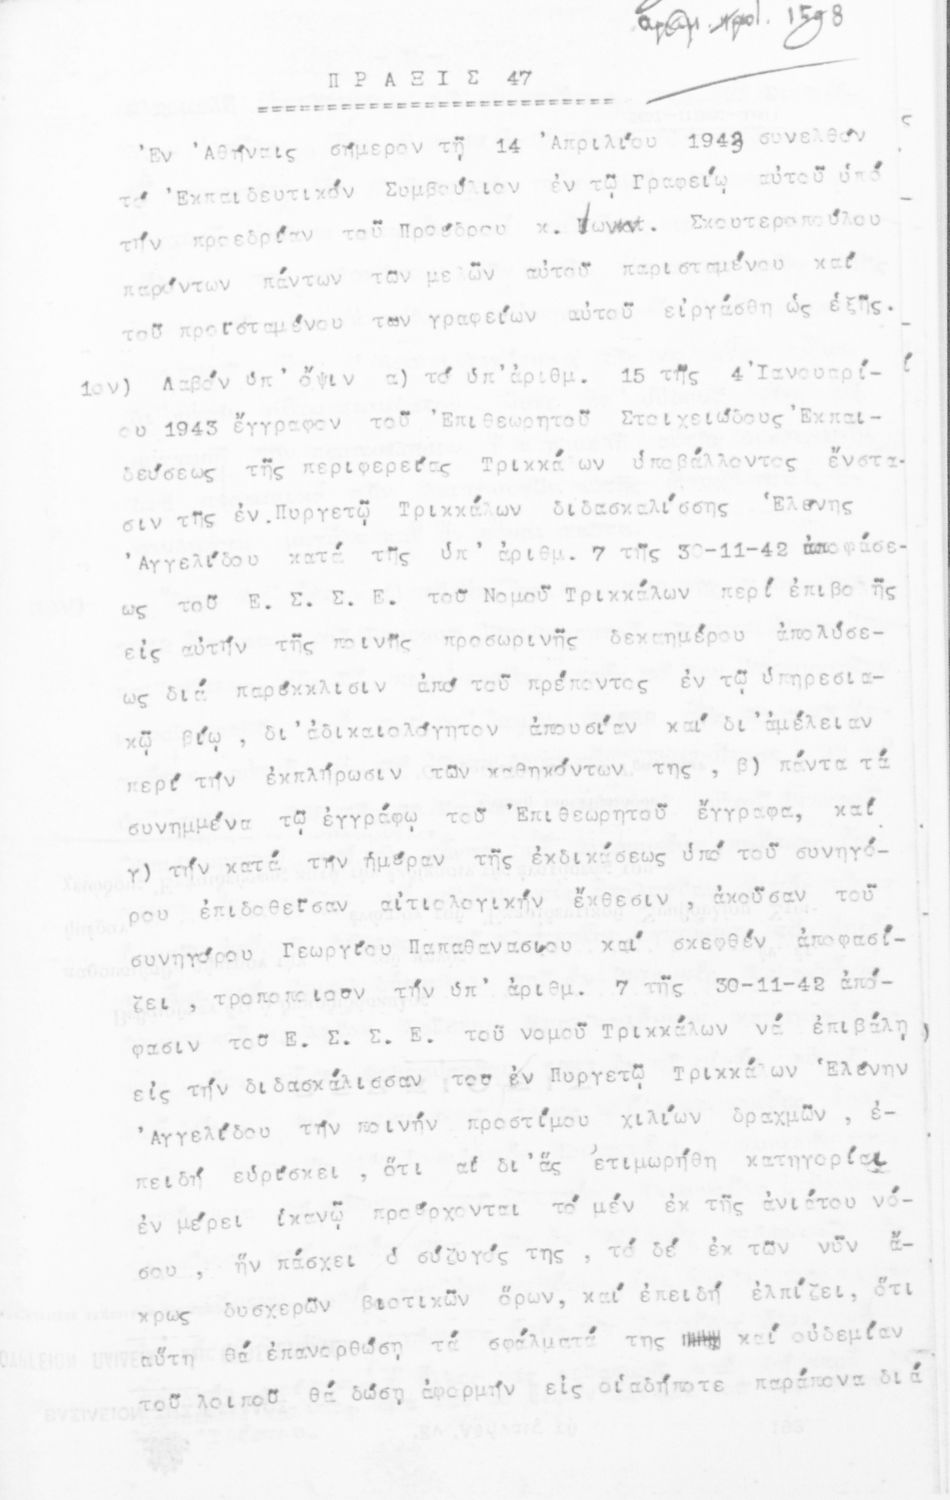 ἀριθμ. πρωτ. 1598
ΠΡΑΞΙΣ 47
Ἐν Ἀθήναις σήμερον τῇ 14 Ἀπριλίου 1943 συνελθόν
τό Ἐκπαιδευτικόν Συμβούλιον ἐν τῷ Γραφείῳ αὐτοῦ ὑπό
τήν προεδρίαν τοῦ Προέδρου κ. Σκουτεροπούλου
παρόντων πάντων τῶν μελῶν αὐτοῦ παρισταμένου καί
τοῦ προϊσταμένου των γραφείων αὐτοῦ εἰργάσθη ὡς ἑξῆς.
1ον) Λαβόν ὑπ' ὄψιν α) τό ὑπ' ἀριθμ. 15 τῆς 4 Ἰανουαρί-
ου 1943 ἔγγραφον τοῦ Ἐπιθεωρητοῦ Στοιχειώδους Ἐκπαι-
δεύσεως τῆς περιφερείας Τρικκάλων ὑποβάλλοντος ἔνστα-
σιν τῆς ἐν Πυργετῷ Τρικκάλων διδασκαλίσσης Ἑλένης
Ἀγγελίδου κατά τῆς ὑπ' ἀριθμ. 7 τῆς 30-11-42 ἀποφάσε-
ως τοῦ Ε. Σ. Σ. Ε. τοῦ Νομοῦ Τρικκάλων περί ἐπιβολῆς
εἰς αὐτήν τῆς ποινῆς προσωρινῆς δεκαημέρου ἀπολύσε-
ως διά παρέκκλισιν ἀπό τοῦ πρέποντος ἐν τῷ ὑπηρεσια-
κῷ βίῳ , δι' ἀδικαιολόγητον ἀπουσίαν καί δι' ἀμέλειαν
περί τήν ἐκπλήρωσιν τῶν καθηκόντων της , β) πάντα τά
συνημμένα τῷ ἐγγράφῳ τοῦ Ἐπιθεωρητοῦ ἔγγραφα, καί
γ) τήν κατά τήν ἡμέραν τῆς ἐκδικάσεως ὑπό τοῦ συνηγό-
ρου ἐπιδοθεῖσαν αἰτιολογικήν ἔκθεσιν , ἀκοῦσαν τοῦ
συνηγόρου Γεωργίου Παπαθανασίου καί σκεφθέν ἀποφασί-
ζει , τροποποιοῦν τήν ὑπ' ἀριθμ. 7 τῆς 30-11-42 ἀπό-
φασιν τοῦ Ε. Σ. Σ. Ε. τοῦ νομοῦ Τρικκάλων νά ἐπιβάλῃ
εἰς τήν διδασκάλισσαν του ἐν Πυργετῷ Τρικκάλων Ἑλένην
Ἀγγελίδου τήν ποινήν προστίμου χιλίων δραχμῶν , ἐ-
πειδή εὑρίσκει , ὅτι αἱ δι' ἅς ἐτιμωρήθη κατηγορίαι
ἐν μέρει ἱκανῷ προέρχονται τό μέν ἐκ τῆς ἀνιάτου νό-
σου , ἥν πάσχει ὁ σύζυγός της , τό δέ ἐκ τῶν νῦν ἄ-
κρως δυσχερῶν βιοτικῶν ὅρων, καί ἐπειδή ἐλπίζει, ὅτι
αὕτη θά ἐπανορθώσῃ τά σφάλματά της καί οὐδεμίαν
τοῦ λοιποῦ θά δώσῃ ἀφορμήν εἰς οἱαδήποτε παράπονα διά